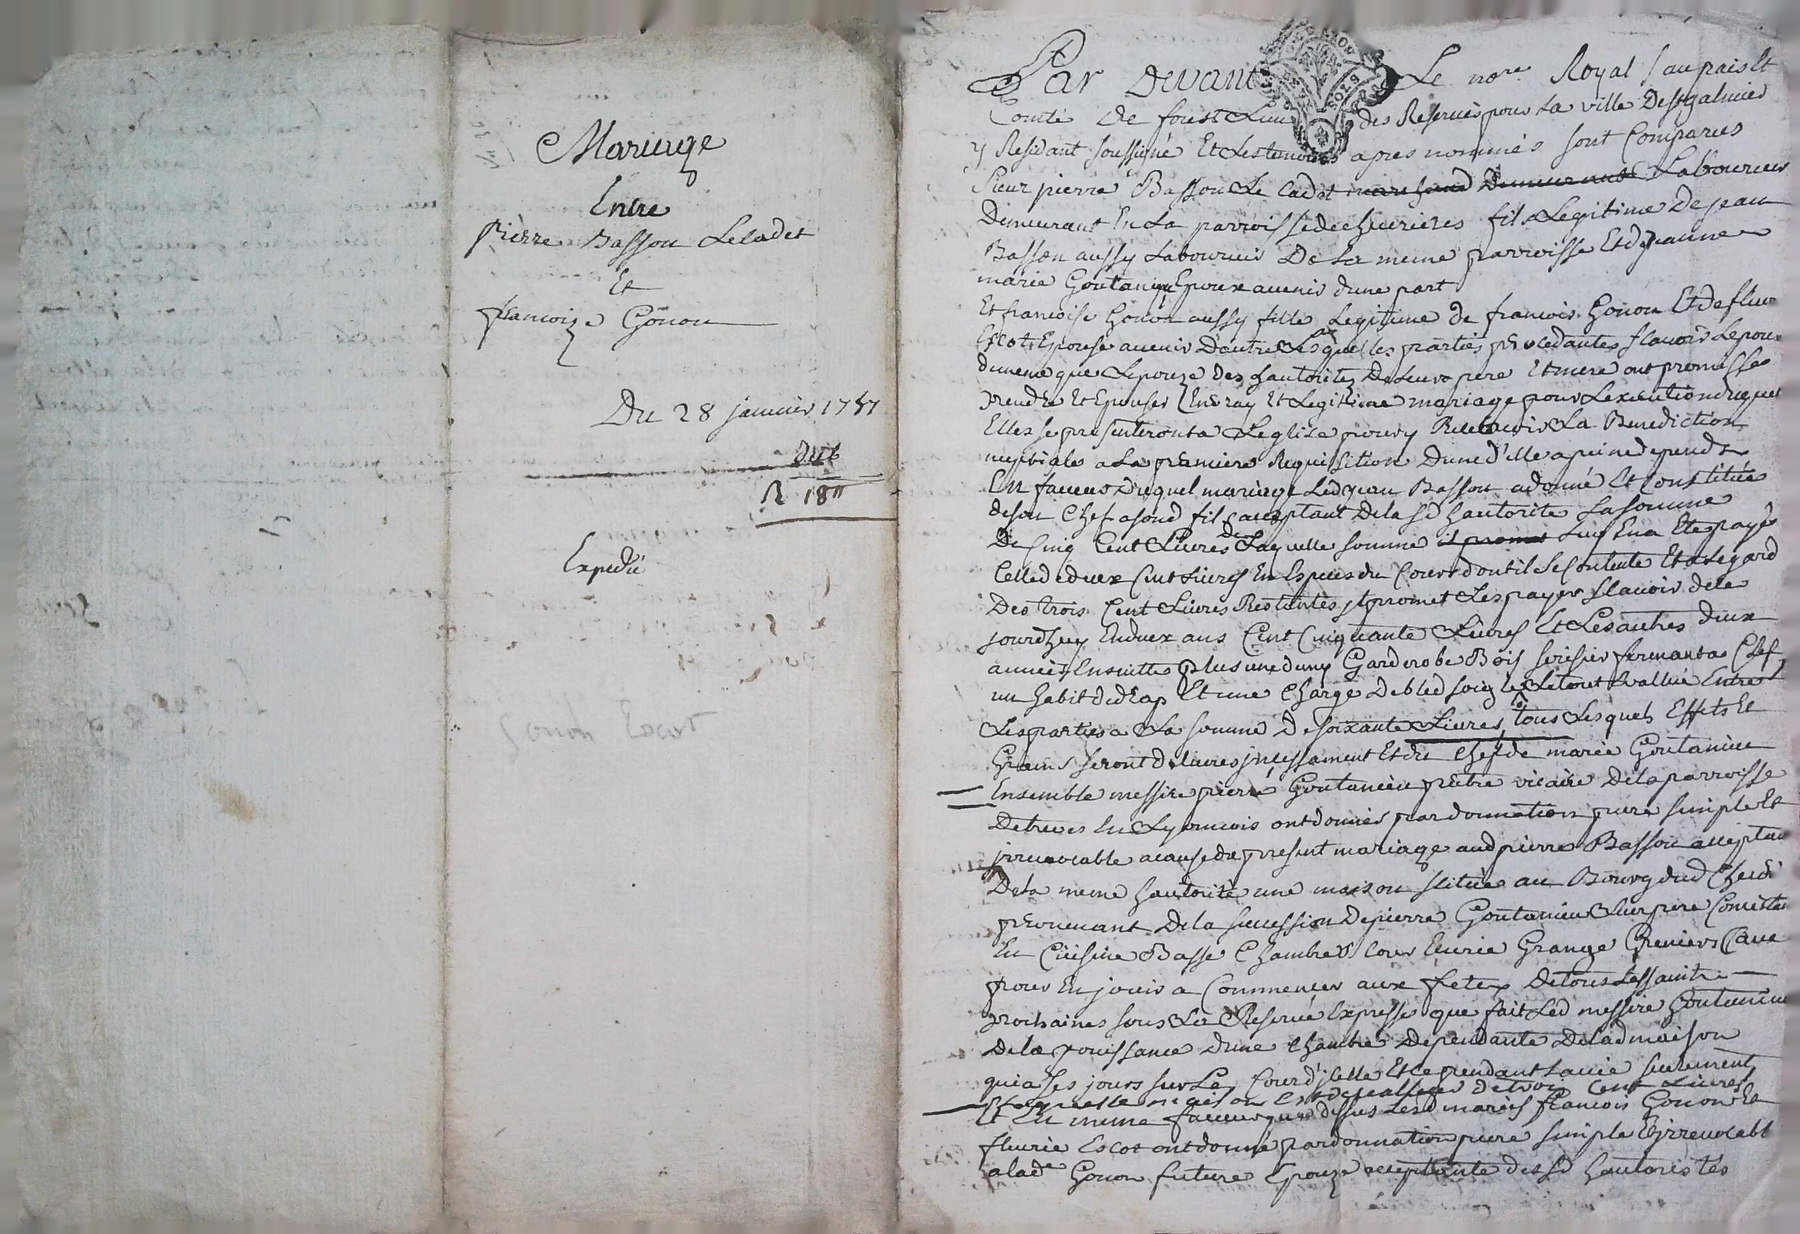 Mariage
Entre
pierre Basson Lecadet
Et
francoize Gonon
Du 28 janvier 1757
dub
R 18"
Expedié
gonon Escot
Par Devant Le nore Royal / au païs Et
Comté de forest Lun des Reservés pour La ville Destgalmier
y Residant soussigné Et Lestemoins apres nommés sont Comparus
sieur pierre Basson Le Cadet marchand Demeurant Laboureur
Demeurant En La parroisse de chevrieres fils Legitime De jean
Basson aussy Laboureur De La meme parroisse Et de jeanne
marie Goutanieu Epoux avenir dune part
Et francoise Gonon aussy fille Legitime de francois Gonon Et de fleurie
Escot Epouse avenir Dautre Lesquelles parties procedantes sçavoir Lepoux
dumeme que Lepouze Des hautorités De Leurs pere Et mere ont promis se
prendre Et Epouser En vray Et Legitime mariage pour Lexecution duquel
Elles se presenteronta Leglise pour y Recevoir La Benediction
nuptiale a La premiere Requisition Dune d'elle a peine depends
En faveur Duquel mariage Led jean Basson a donné Et Constitué
deson Chef asond fils acceptant De la sd hautorité La somme
De Cinq Cent Livres De Laquelle somme il promet Luy En a Eté payé
Celle de deux Cent Livres En Especes du Cours dontil se Contente Et a Legard
Des trois Cent Livres Restantes jl promet Les payer sçavoir de ce
jourdhuy En deux ans Cent Cinquante Livres Et Les autres deux
années Ensuitte plus une duny Garderobe Bois serisier fermanta Chef
un habit de drap Et une Charge De bled soigle Le tout Evallué Entre
Les parties a La somme De soixante Livres, tous Lesquels Effets Et
Grains seront delivrés jncessament Et du Chef de marie Goutanieu
Ensemble messire pierre Goutanieu prêtre vicaire De la parroisse
De treves En Lyonnois ont donnés par donnation pure simple Et
jrrevocable acause du present mariage aud pierre Basson acceptant
De la meme hautorité une maison scituée au Bourg dud Chevri
provenant De la succession De pierre Goutanieu Leur pere Consistan
En Cuisine Basse Chambres Cour Ecurie Grange Greniers Cave
pour En jouir a Commencer aux fetes De tous Les saints
prochaines sous La Reserve Expresse que fait Led messire Goutanieu
De la jouissance dune Chambre Dependante De lad maison
qui a ses jours sur La Cour d'jcelle Et ce pendant sa vie seulement
Et laquelle maison Est de valleur de trois Cent Livres
Et En meme faveur que dessus Lesd mariés francois Gonon Et
fleurie Escot ont donné par donnation pure simple Et jrrevocabl
a lade Gonon future Epouze acceptante des sd hautorités